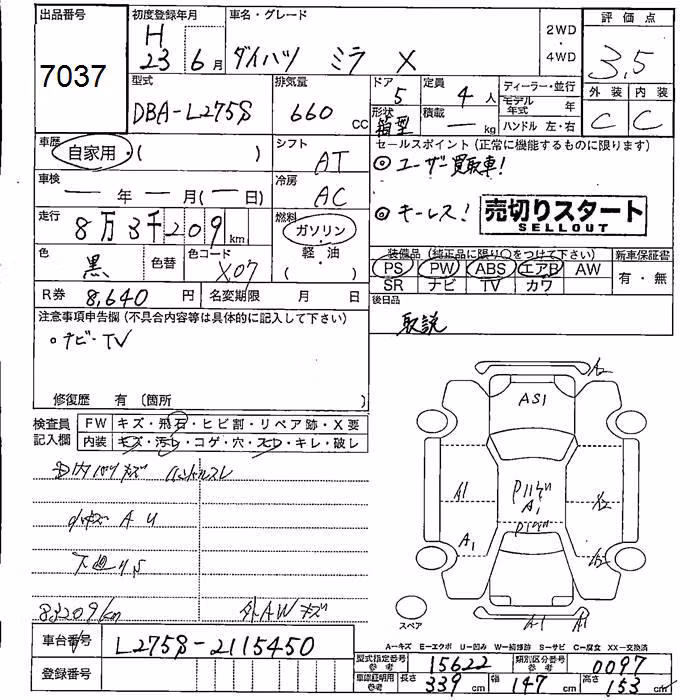 出品番号 初度登録年月 車名・グレード 2WD ・ 4WD 評価点
7037 H 23 6月 ダイハツ ミラ X 3.5
型式 排気量 ドア 定員 ディーラー・並行 外装 内装
DBA-L275S 660 CC 5 4人 モデル年式 年 C C
形状 箱型 積載 ー kg ハンドル 左・右
車歴 自家用・( ) シフト AT セールスポイント (正常に機能するものに限ります)
◎ユーザー買取車!
車検 ー年ー月(ー日) 冷房 AC
◎キーレス! 売切りスタート
SELLOUT
走行 8万3千209km 燃料 ガソリン・軽・油( )
色 黒 色替 色コード X07
装備品 (純正品に限り○をつけて下さい) 新車保証書
PS PW ABS エアB AW 有・無
SR ナビ TV カワ
R券 8,640円 名変期限 月 日 後日品
取説
注意事項申告欄 (不具合内容等は具体的に記入して下さい)
○ナビ・TV
修復歴 有 (箇所 )
検査員記入欄 FW キズ・飛石・ヒビ割・リペア跡・X要
内装 キズ・汚れ・コゲ・穴・スレ・キレ・破レ
ハンドルスレ
小キズ A U
下廻りS
83209km 外AWキズ
A2
AS1
A1
A1
A1
A1 A1
スペア
A-キズ E-エクボ U-凹み W-補修跡 S-サビ C-腐食 XX-交換済
車台番号 L275S-2115450
登録番号
型式指定番号 参考 15622 類別区分番号 参考 0097
車庫証明用 参考 長さ 339cm 幅 147cm 高さ 153cm